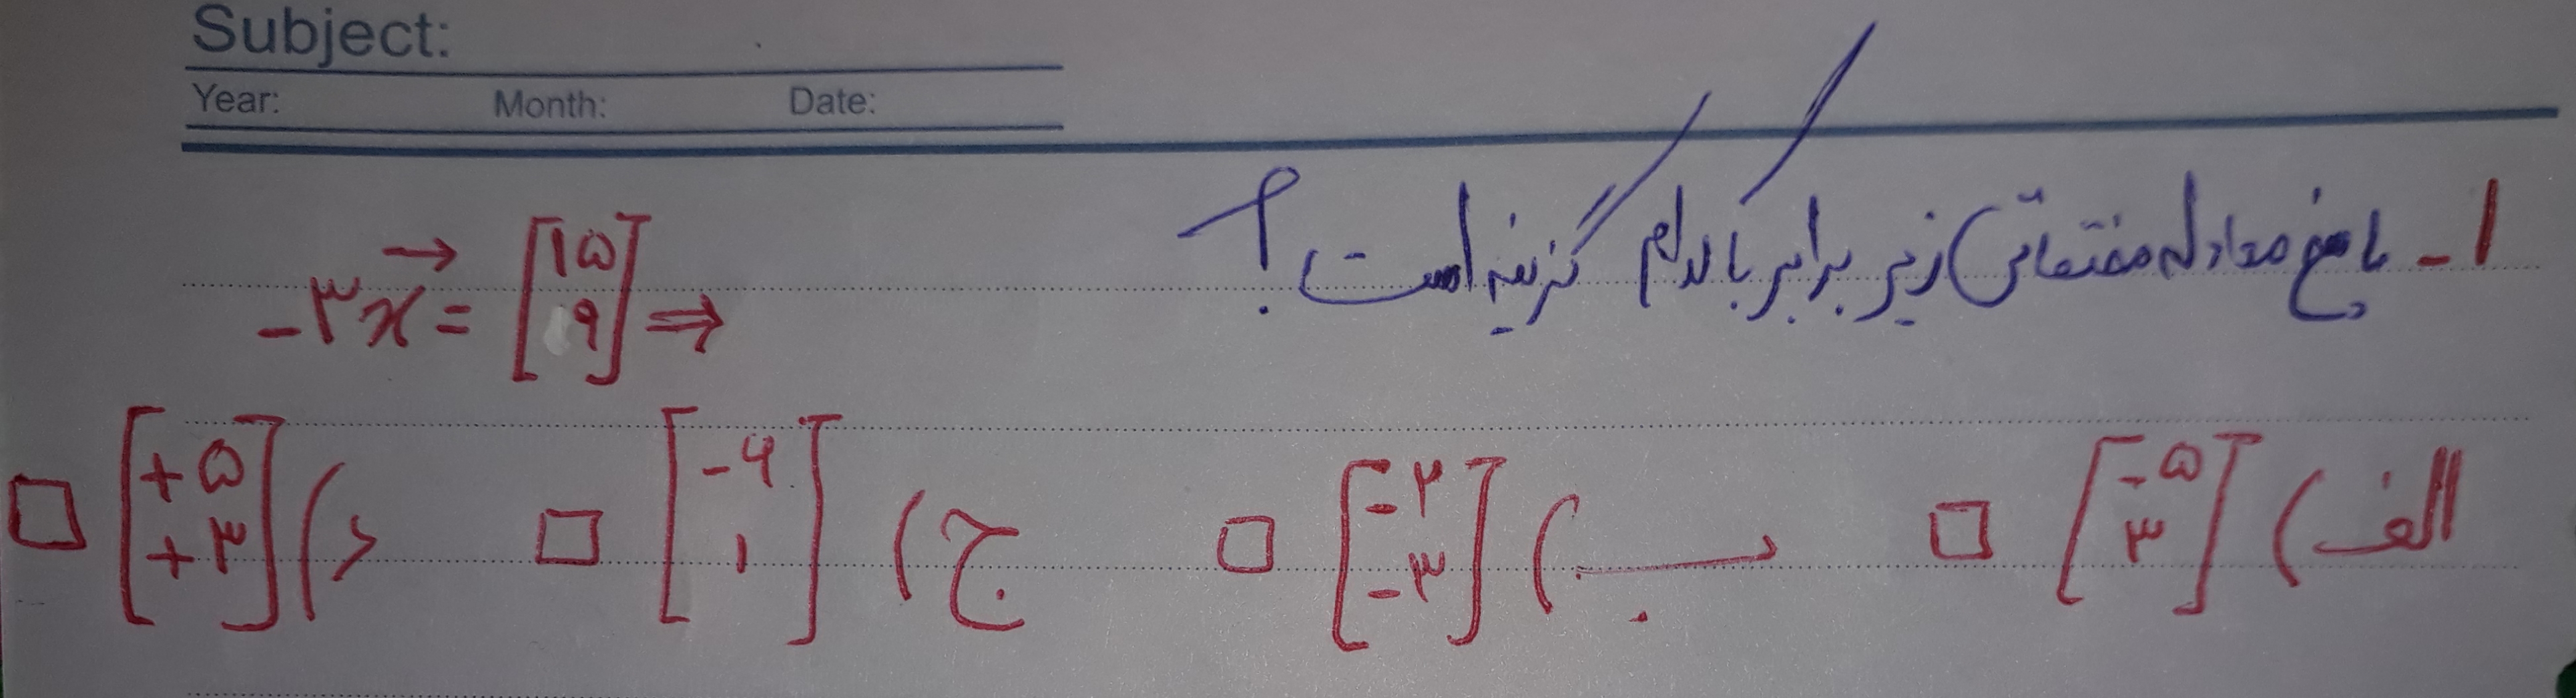 Subject:
Year: Month: Date:
۱- پاسخ معادله مختصاتی زیر برابر با کدام گزینه است؟
-۳x⃗ = [۱۵ ۹] ⇒
الف) [-۵ ۳] □ ب) [-۲ -۳] □ ج) [-۶ ۱] □ د) [+۵ +۳] □